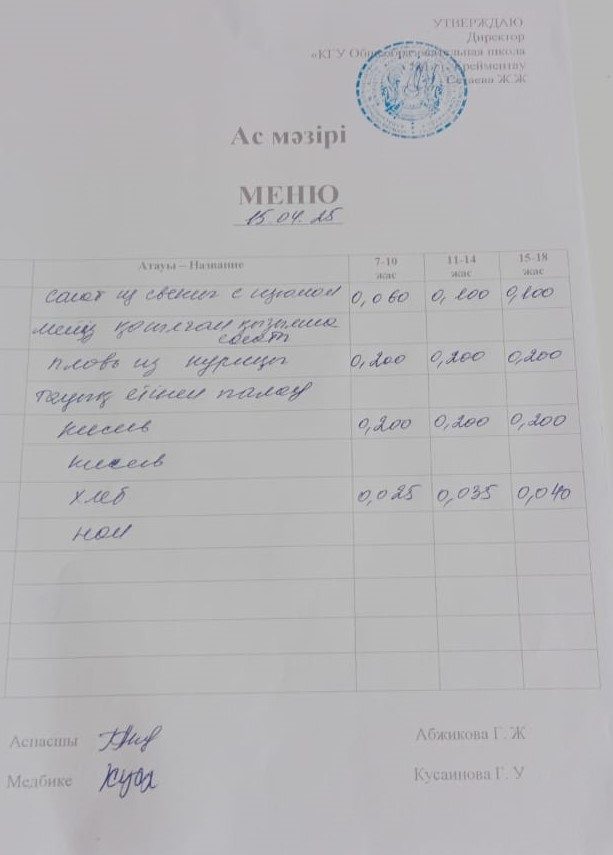 УТВЕРЖДАЮ
Директор
«КГУ Общеобразовательная школа
Ерейментау
Ж.Ж
Ас мәзірі
МЕНЮ
15.04.25
Атауы – Название 7-10 жас 11-14 жас 15-18 жас
салат из свеклы с изюмом 0,060 0,100 0,100
мейіз қосылған қызылша
салат
плов из курицы 0,200 0,200 0,200
тауық етінен палау
кисель 0,200 0,200 0,200
кисель
хлеб 0,025 0,035 0,040
нан
Аспасшы Абжикова Г. Ж
Медбике Кусаинова Г. У